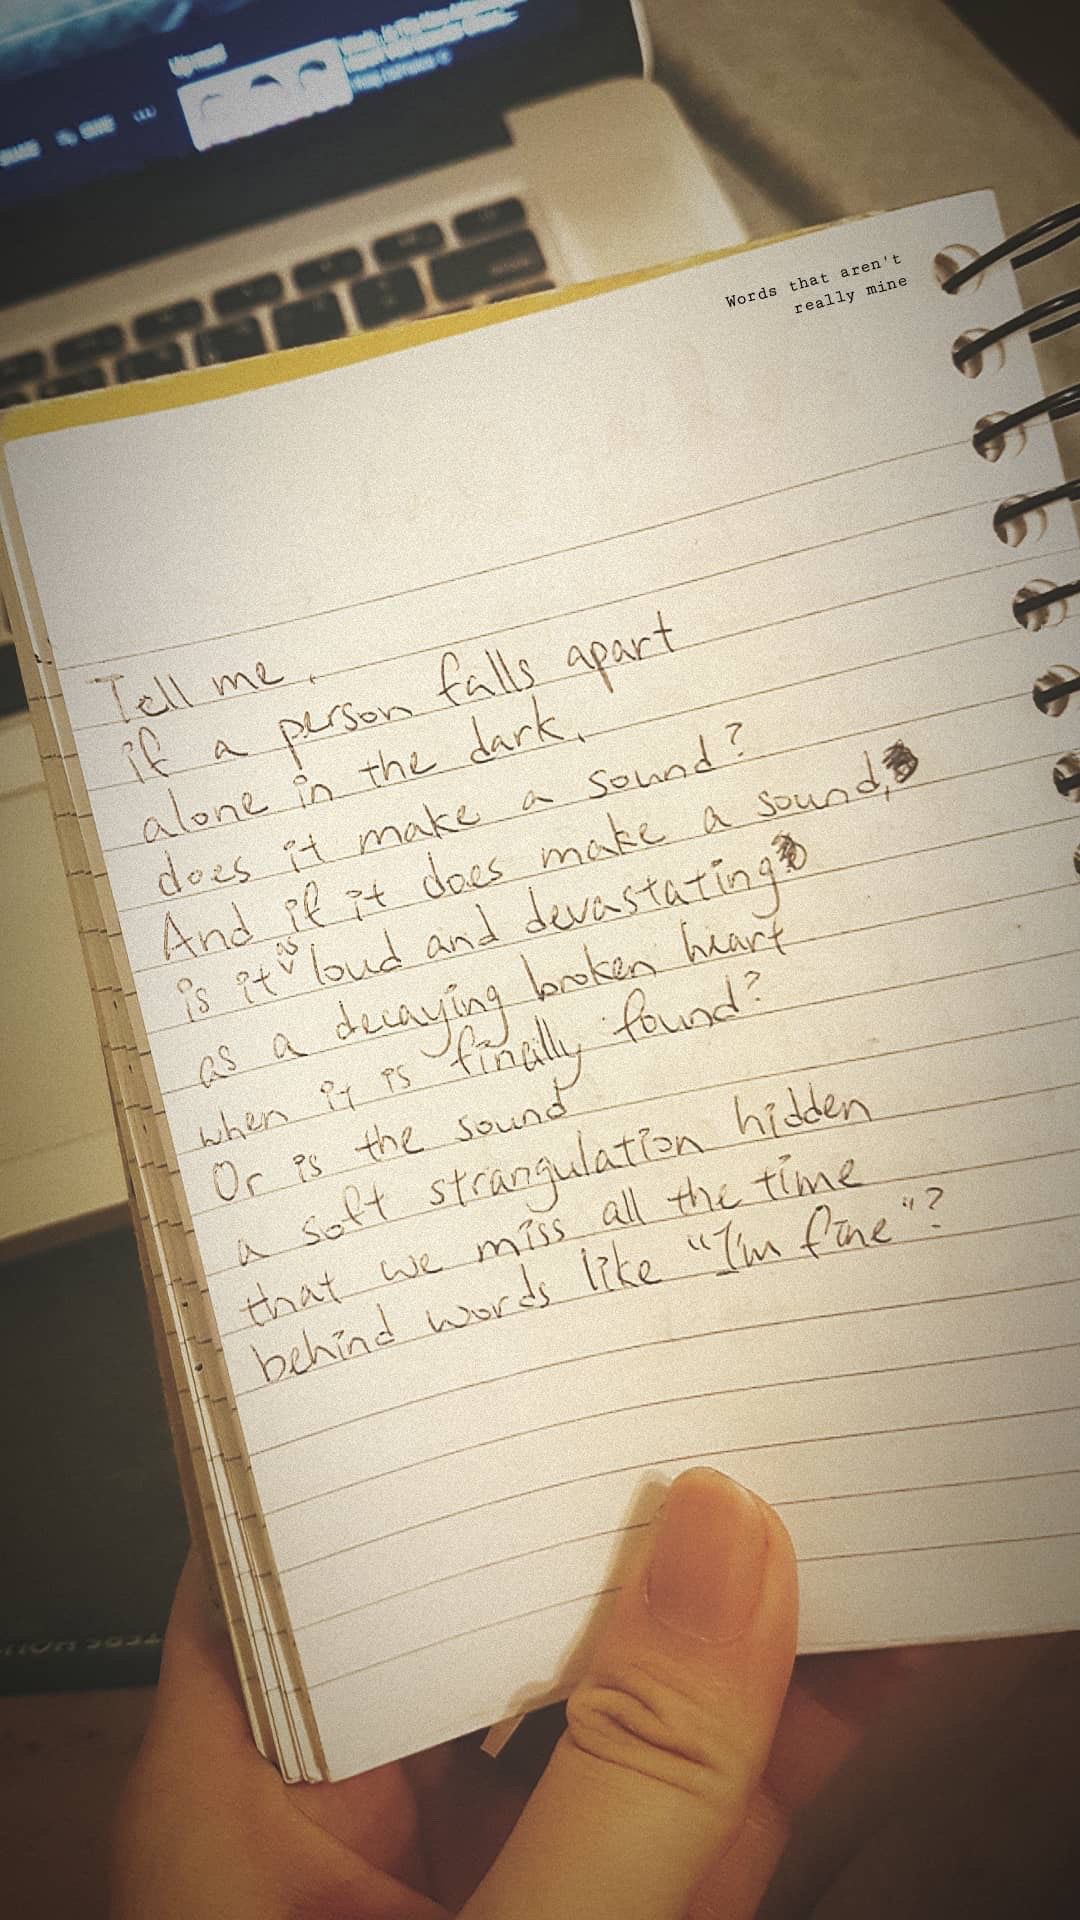 Words that aren't
really mine
Tell me,
if a person falls apart
alone in the dark,
does it make a sound?
And if it does make a sound,
is it as loud and devastating
as a decaying broken heart
when it is finally found?
Or is the sound
a soft strangulation hidden
that we miss all the time
behind words like "I'm fine"?